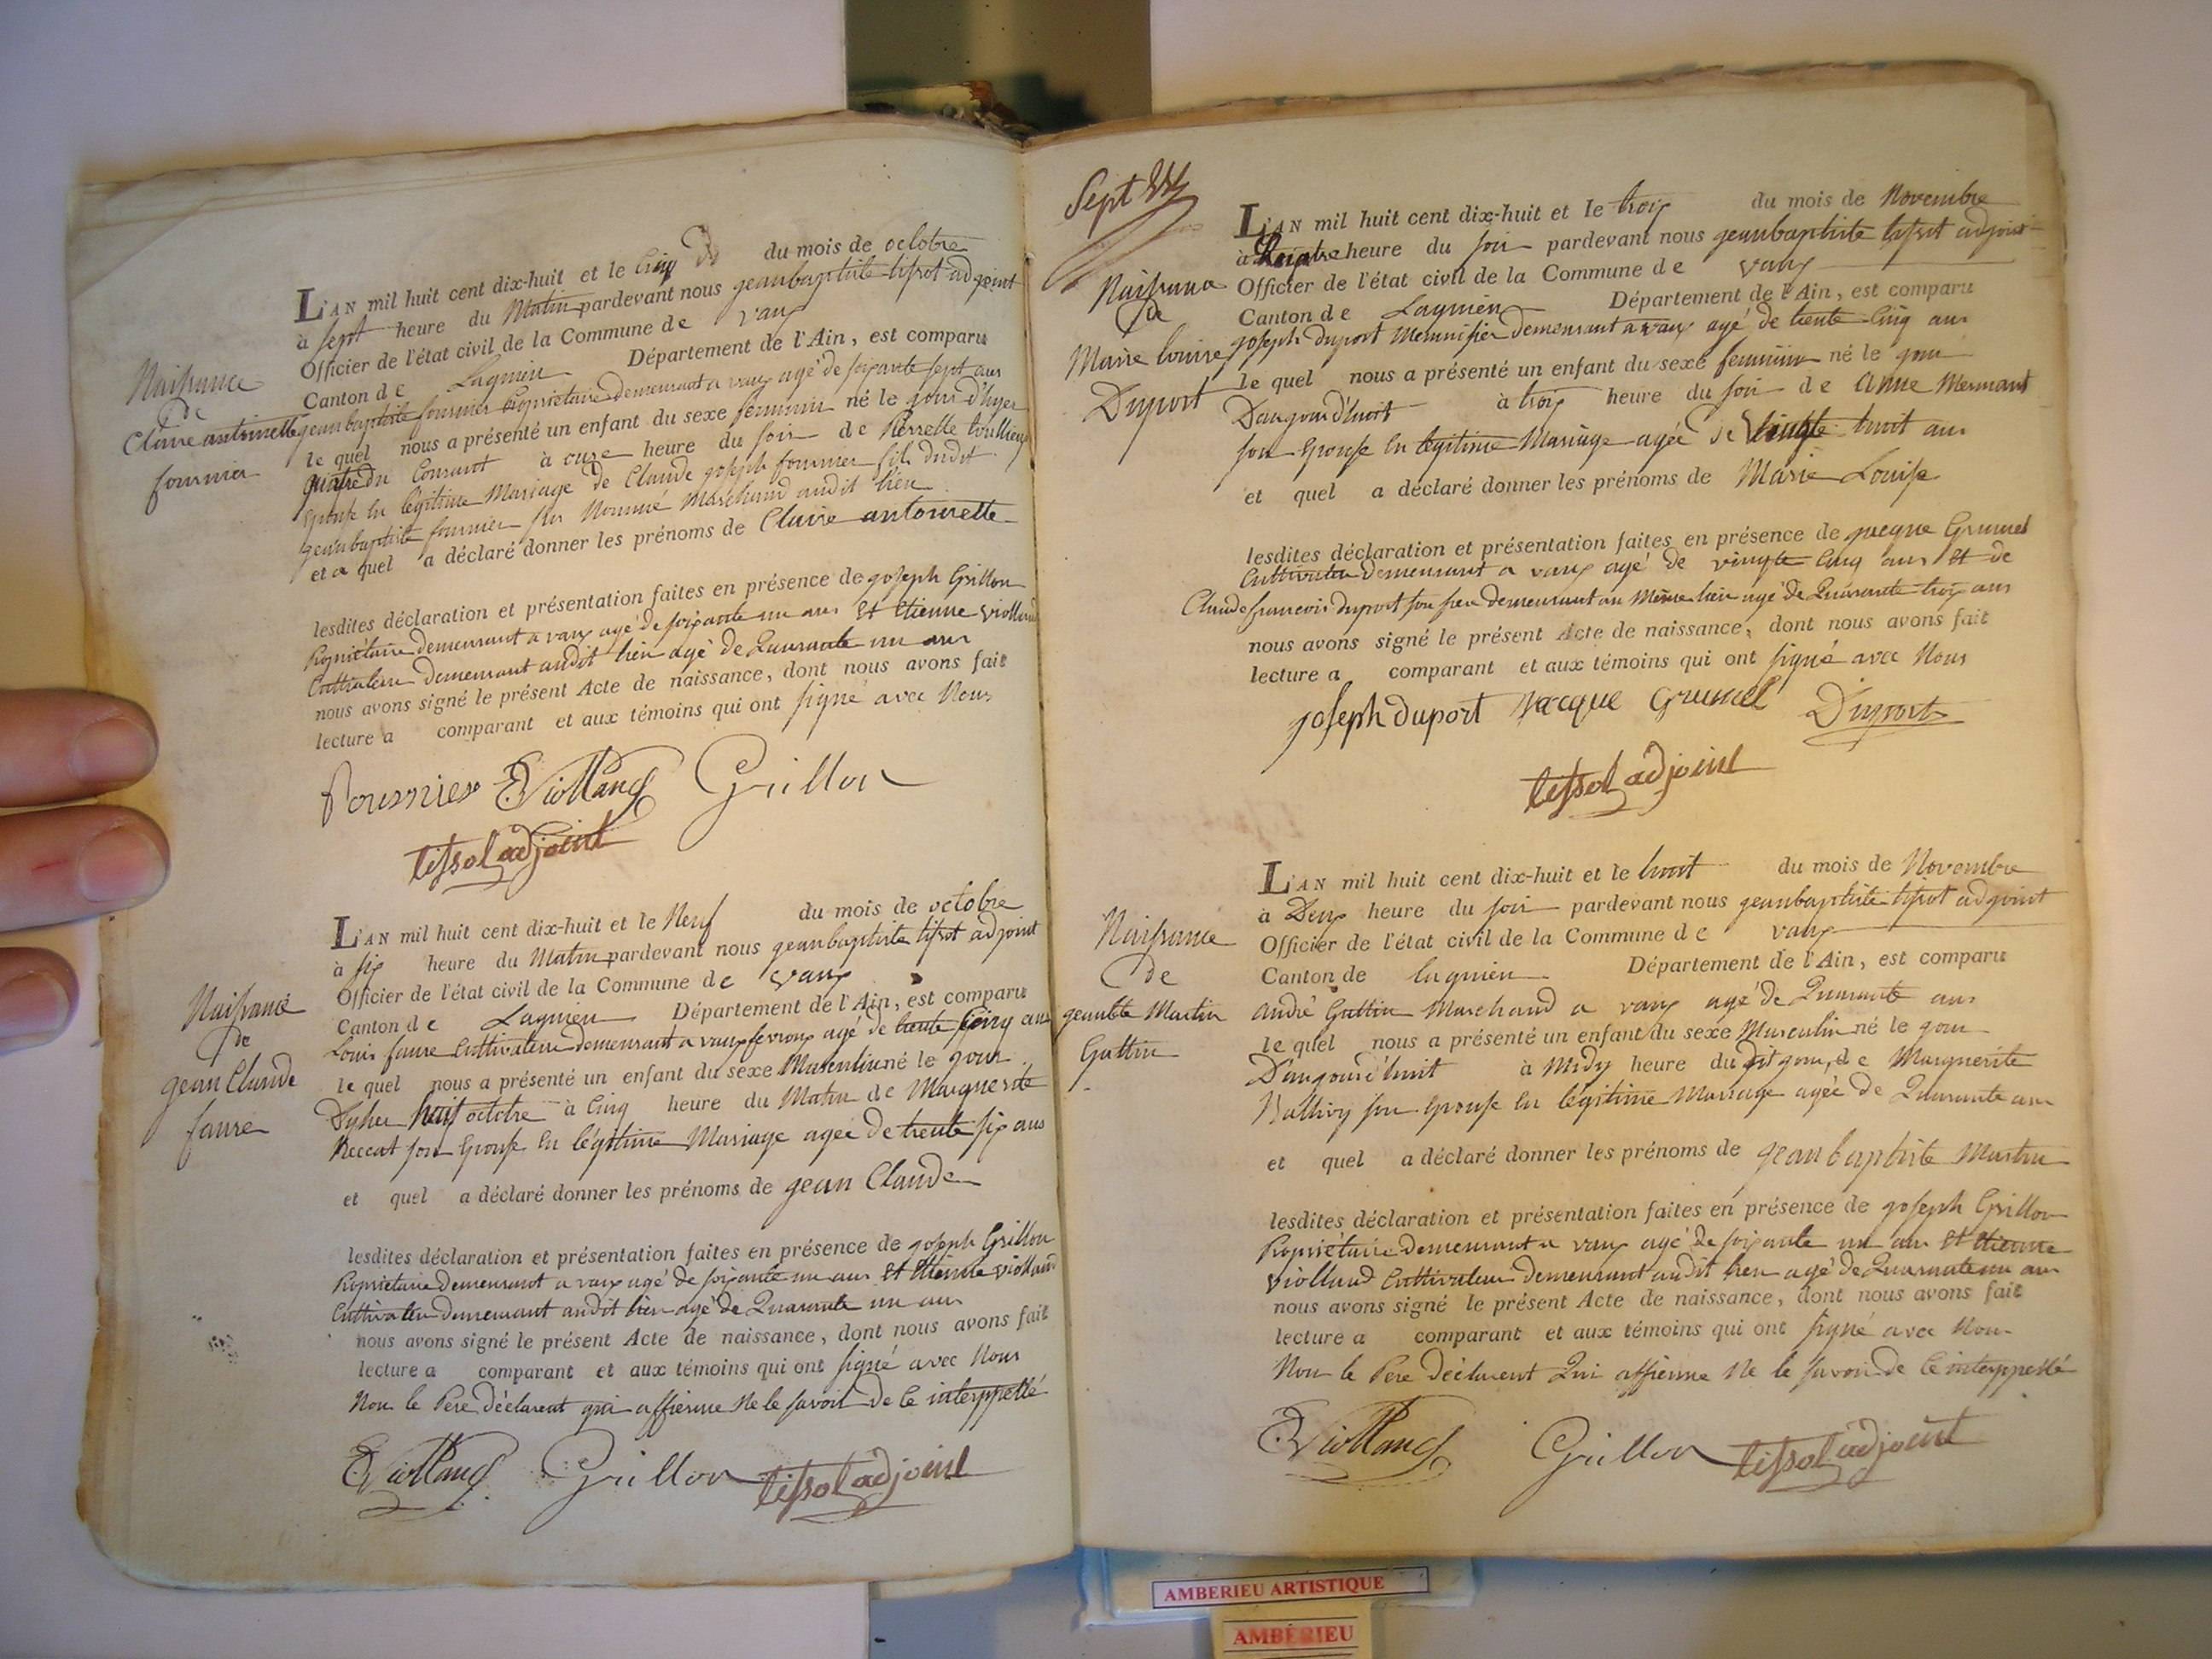 Naissance
de
Claire antoinette
fournier
L'AN mil huit cent dix-huit et le cinq du mois de octobre
à sept heure du Matin pardevant nous geanbaptiste tissot adjoint
Officier de l'état civil de la Commune de vaux
Canton de Lagnieu Département de l'Ain, est comparu
geanbaptiste fournier propriétaire demeurant a vaux agé de soixante sept ans
le quel nous a présenté un enfant du sexe feminin né le jour d'hyer
quatre du Courant à onze heure du soir de Pierrette
Epouse en légitime Mariage de Claude joseph fournier fils dudit
geanbaptiste fournier sus Nommé Marchand audit lieu
et a quel a déclaré donner les prénoms de Claire antoinette
lesdites déclaration et présentation faites en présence de joseph Grillon
Propriétaire demeurant a vaux agé de soixante un ans Et Etienne violland
Cultivateur demeurant audit lieu agé de Quarante un ans
nous avons signé le présent Acte de naissance, dont nous avons fait
lecture a comparant et aux témoins qui ont signé avec Nous
fournier EViolland Grillon
tissot adjoint
Naissance
de
gean Claude
faure
L'AN mil huit cent dix-huit et le Neuf du mois de octobre
à six heure du Matin pardevant nous geanbaptiste tissot adjoint
Officier de l'état civil de la Commune de vaux
Canton de Lagnieu Département de l'Ain, est comparu
Louis faure Cultivateur demeurant a vaux fevroux agé de trente ans
le quel nous a présenté un enfant du sexe Masculin né le jour
D'yher huit octobre à Cinq heure du Matin de Marguerite
son Epouse En légitime Mariage agée de trente six ans
et quel a déclaré donner les prénoms de gean Claude
lesdites déclaration et présentation faites en présence de joseph Grillon
Propriétaire demeurant a vaux agé de soixante un ans Et Etienne violland
Cultivateur demeurant audit lieu agé de Quarante un ans
nous avons signé le présent Acte de naissance, dont nous avons fait
lecture a comparant et aux témoins qui ont signé avec Nous
Non le Pere déclarent qui affirme Ne le savoir de Ce interppellé
EViolland Grillon tissot adjoint
Sept
Naissance
de
Marie Louise
Duport
L'AN mil huit cent dix-huit et le trois du mois de Novembre
à Quatre heure du soir pardevant nous geanbaptiste tissot adjoint
Officier de l'état civil de la Commune de vaux
Canton de Lagnieu Département de l'Ain, est comparu
joseph duport Menuisier demeurant a vaux agé de trente Cinq ans
le quel nous a présenté un enfant du sexe feminin né le jour
D'aujourd'huit à trois heure du soir de Anne Mermant
son Epouse En légitime Mariage agée de Vingte huit ans
et quel a déclaré donner les prénoms de Marie Louise
lesdites déclaration et présentation faites en présence de jacque Grumel
Cultivateur demeurant a vaux agé de vingte Cinq ans Et de
Claude francois duport son frere demeurant au Même lieu agé de Quarante trois ans
nous avons signé le présent Acte de naissance, dont nous avons fait
lecture a comparant et aux témoins qui ont signé avec Nous
joseph duport jacque Grumel Duport
tissot adjoint
Naissance
de
geanbte Martin
Guttin
L'AN mil huit cent dix-huit et le huit du mois de Novembre
à Deux heure du soir pardevant nous geanbaptiste tissot adjoint
Officier de l'état civil de la Commune de vaux
Canton de lagnieu Département de l'Ain, est comparu
andré Guttin Marchand a vaux agé de Quarante ans
le quel nous a présenté un enfant du sexe Masculin né le jour
D'aujourd'huit à Midy heure du dit jour, de Marguerite
son Epouse En légitime Mariage agée de Quarante ans
et quel a déclaré donner les prénoms de geanbaptiste Martin
lesdites déclaration et présentation faites en présence de joseph Grillon
Propriétaire demeurant a vaux agé de soixante un ans Et Etienne
violland Cultivateur demeurant audit lieu agé de Quarante un ans
nous avons signé le présent Acte de naissance, dont nous avons fait
lecture a comparant et aux témoins qui ont signé avec Nous
Non le Pere déclarent Qui affirme Ne le savoir de Ce interppellé
EViolland Grillon tissot adjoint
AMBERIEU ARTISTIQUE
AMBÉRIEU